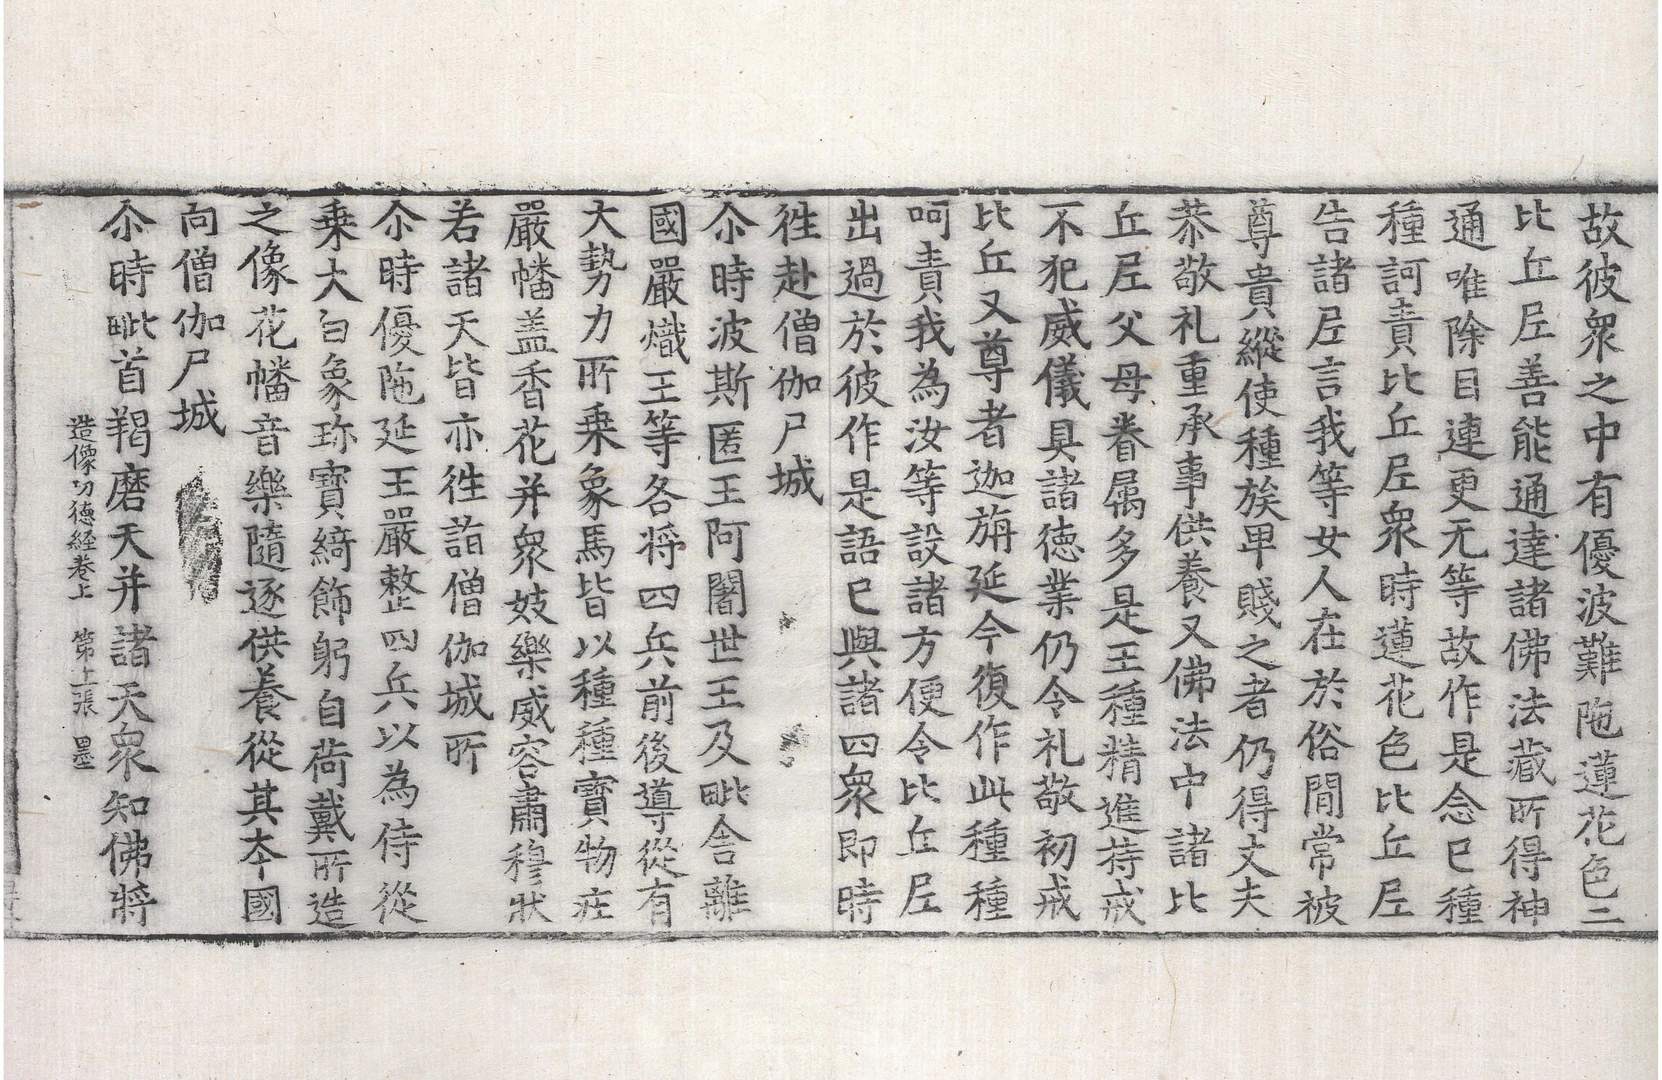 故彼衆之中有優波難陁蓮花色二
比丘尼善能通達諸佛法藏所得神
通唯除目連更无等故作是念已種
種訶責比丘尼衆時蓮花色比丘尼
告諸尼言我等女人在於俗閒常被
尊貴縱使種族卑賤之者仍得丈夫
恭敬礼重承事供養又佛法中諸比
丘尼父母眷属多是王種精進持戒
不犯威儀具諸徳業仍令礼敬初戒
比丘又尊者迦旃延今復作此種種
呵責我為汝等設諸方便令比丘尼
出過於彼作是語已與諸四衆即時
徃赴僧伽尸城
尒時波斯匿王阿闍世王及毗舍離
國嚴熾王等各將四兵前後導從有
大勢力所乗象馬皆以種種寳物庄
嚴幡盖香花并衆妓樂威容肅穆狀
若諸天皆亦徃詣僧伽城所
尒時優陁延王嚴整四兵以為侍從
乗大白象珎寳綺飾躬自荷戴所造
之像花幡音樂隨逐供養從其夲國
向僧伽尸城
尒時毗首羯磨天并諸天衆知佛將
造像功德経卷上 第上張 墨